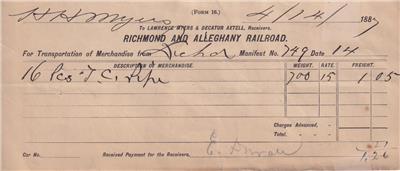 H H Myers (FORM 16.) 4/14/1887
To LAWRENCE MYERS & DECATUR AXTELL, Receivers,
RICHMOND AND ALLEGHANY RAILROAD.
For Transportation of Merchandise from Manifest No. 749 Date 14
DESCRIPTION OF MERCHANDISE. WEIGHT. RATE. FREIGHT.
16 Pcs T. C. Pipe 700 15 1 05
Charges Advanced,
Total,
Car No. Received Payment for the Receivers, 1.26